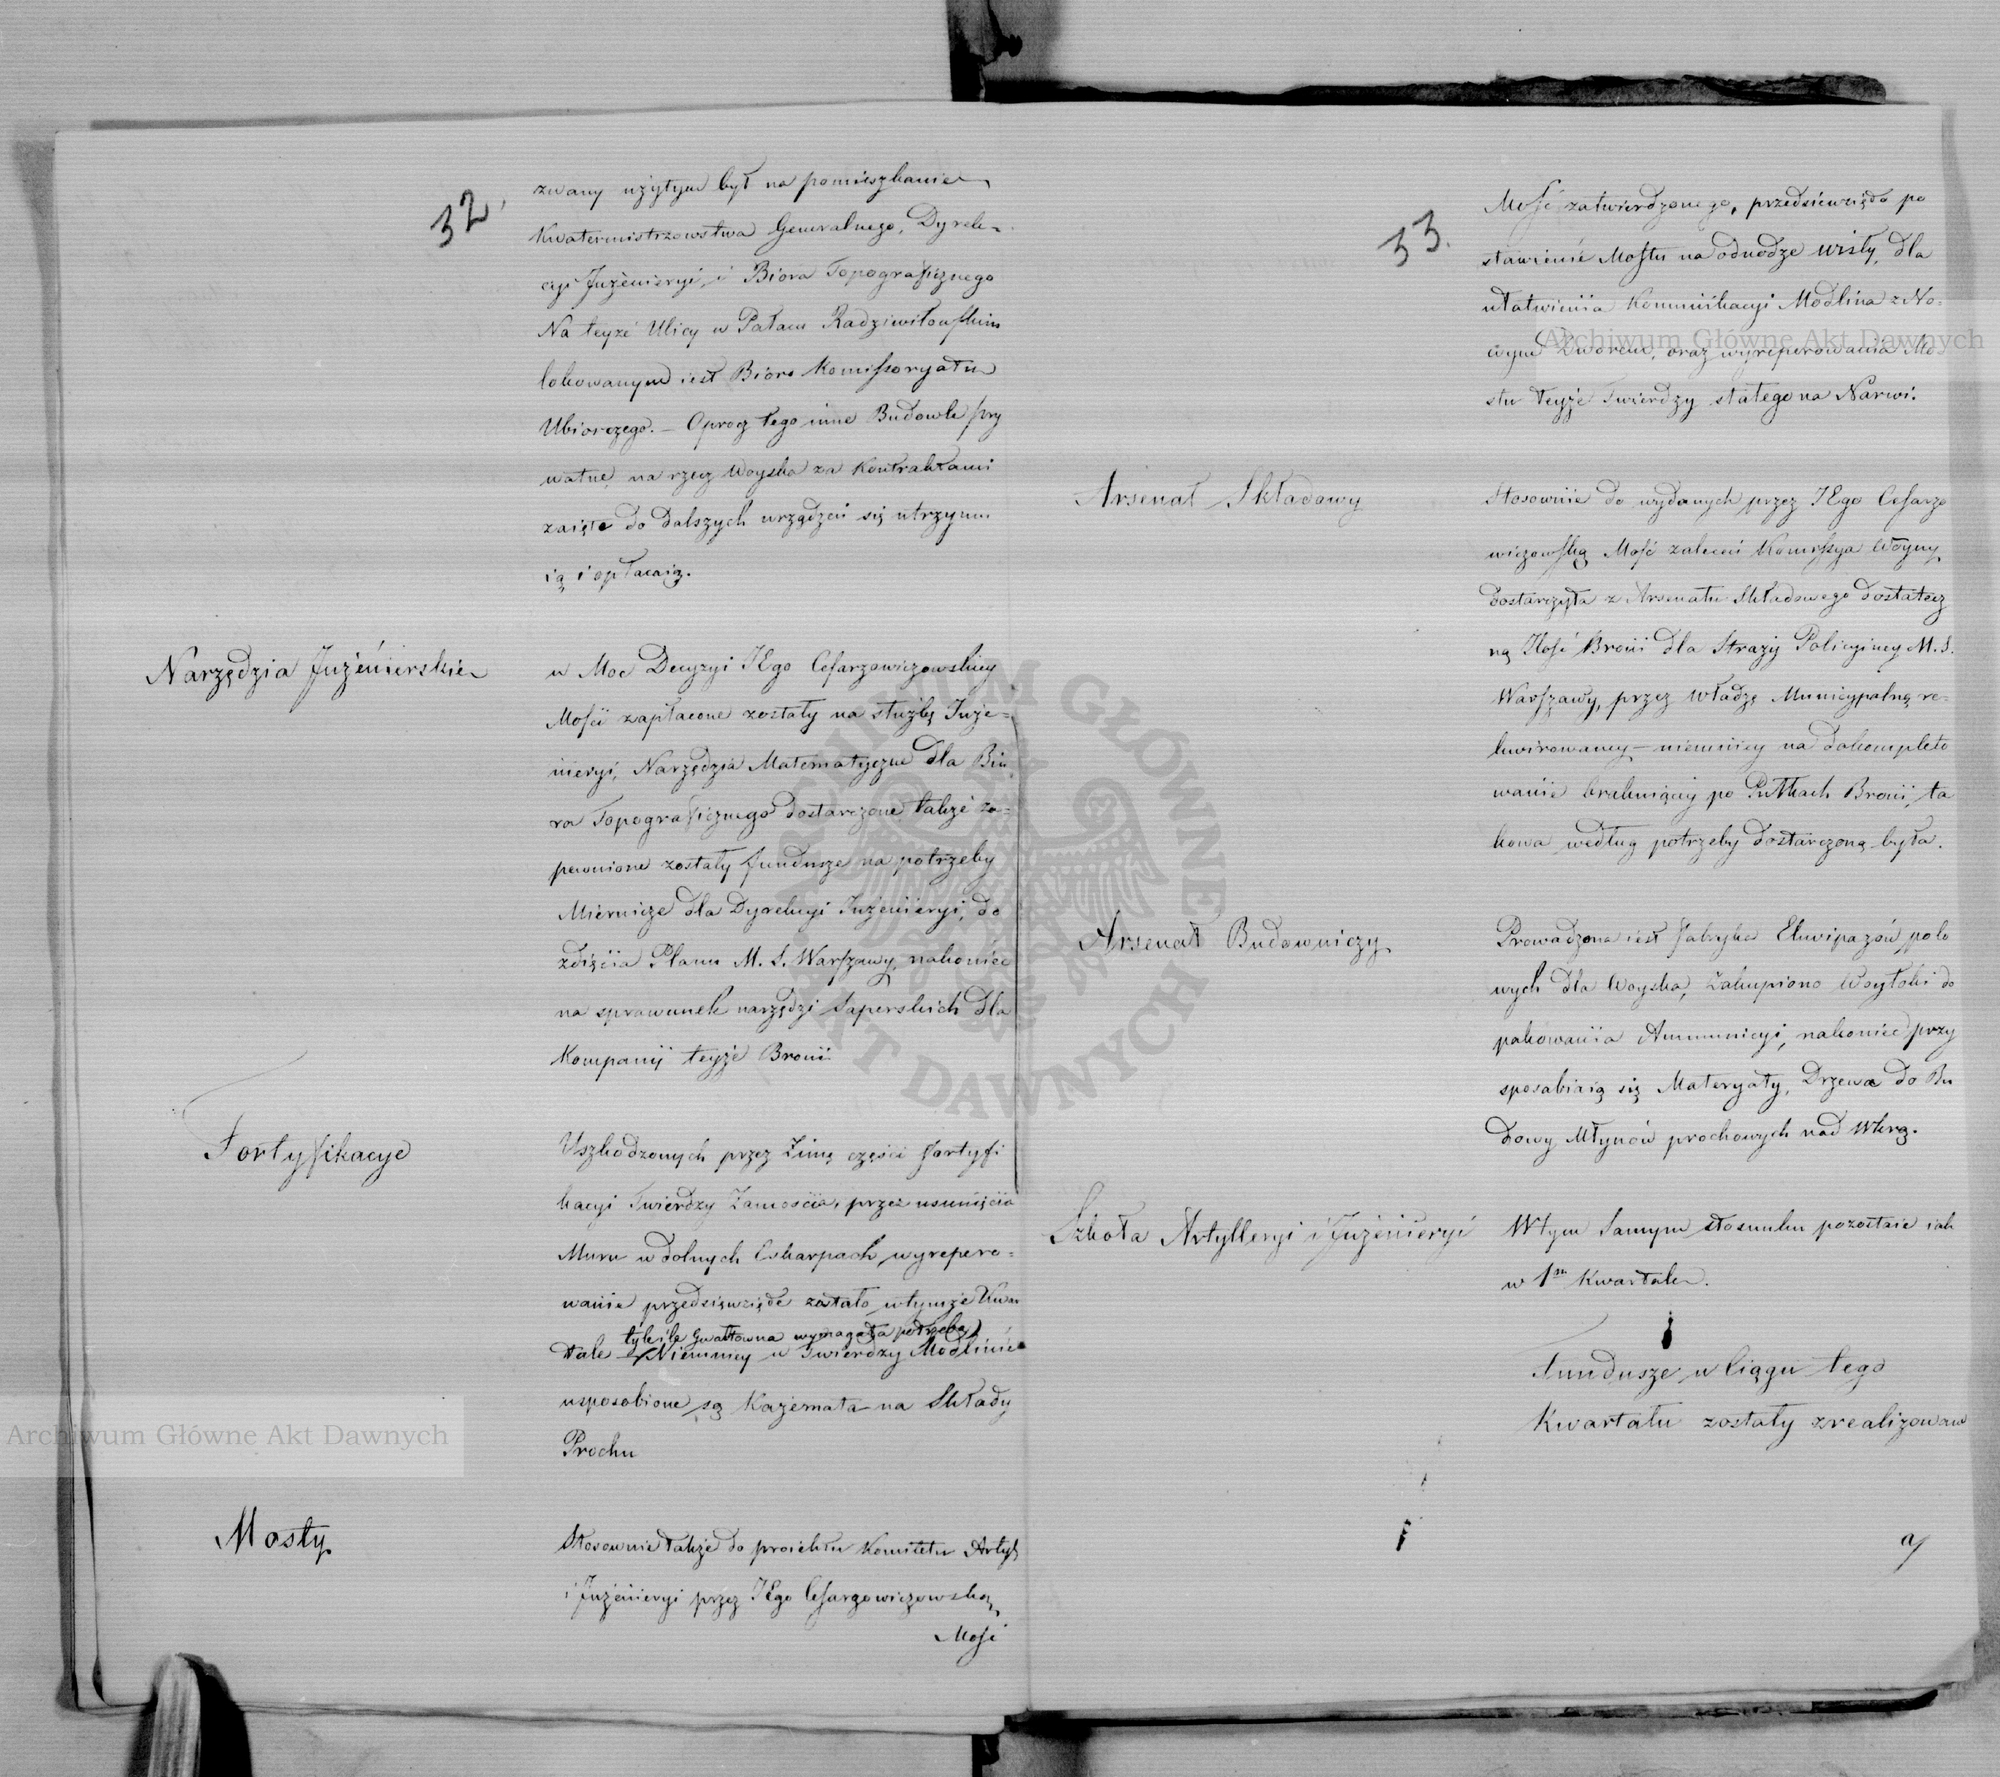 32.
zwany użytym był na pomieszkanie
Kwatermistrzowstwa Generalnego, Dyrek=
cyi Jnżenieryi, i Biora Topograficznego
Na teyże Ulicy w Pałacu Radziwiłowskim
lokowanym iest Bióro Komissoryatu
Ubiorczego. – Oprocz tego inne Budowle pry
watne, na rzecz Woyska za Kontraktami
zaięte do dalszych urządzeń się utrzymu
ią i opłacaią.
Narzędzia Jnżenierskie
w Moc Decyzyi JEgo Cesarzowiczowskiey
Mości zapłacone zostały na służbę Jnże=
nieryi, Narzędzia Matematyczne dla Biu
ra Topograficznego dostarczone, także za=
pewnione zostały fundusze na potrzeby
Miernicze dla Dyrekcyi Jnżenieryi, do
zdięcia Planu M. S. Warszawy, nakoniec
na sprawunek narzędzi Saperskich dla
Kompanij teyże Broni
Fortyfikacye
Uszkodzonych przez Zimę części fortyfi
kacyi Twierdzy Zamościa, przez usunięcia
Muru w dolnych Eskarpach, wyrepero=
wanie przedsięwzięte zostało w tymże Kwar
tyle ile Gwałtowna wymagała potrzeba
tale Niemniey w Twierdzy Modlinie
usposobione są Kazemata na Składy
Prochu
Mosty
Stosownie także do proiektu Komitetu Artyl
i Jnżenieryi przez JEgo Cesarzowiczowską
Mość
33.
Mość zatwierdzonego, przedsiewzięto po
stawienie Mostu na odnodze Wisły, dla
ułatwienia Kommunikacyi Modlina z No=
wym Dworem, oraz wyreperowania Mo
stu teyże Twierdzy stałego na Narwi.
Arsenał Składowy
Stosownie do wydanych przez JEgo Cesarzo
wiczowską Mość zaleceń Komissya Woyny
dostarczyła z Arsenału Składowego dostatecz
ną Jlość Broni dla Straży Policyiney M. S.
Warszawy, przez Władzę Municypalną re=
kwirowaney – niemniey na dokompleto
wanie brakuiącey po Pułkach Broni, ta
kowa według potrzeby dostarczoną była.
Arsenał Budowniczy
Prowadzona iest fabryka Ekwipażów polo
wych dla Woyska, Zakupiono Woyłoki do
pakowania Ammunicyi, nakoniec przy
sposabiaią się Materyały, Drzewa do Bu
dowy Młynów prochowych nad Wkrą.
Szkoła Artylleryi i Jnżenieryi
W tym Samym stosunku pozostaie iak
w 1m Kwartale.
Fundusze w Ciągu tego
Kwartału zostały zrealizowane
Archiwum Główne Akt Dawnych
Archiwum Główne Akt Dawnych
ARCHIWUM GŁÓWNE AKT DAWNYCH